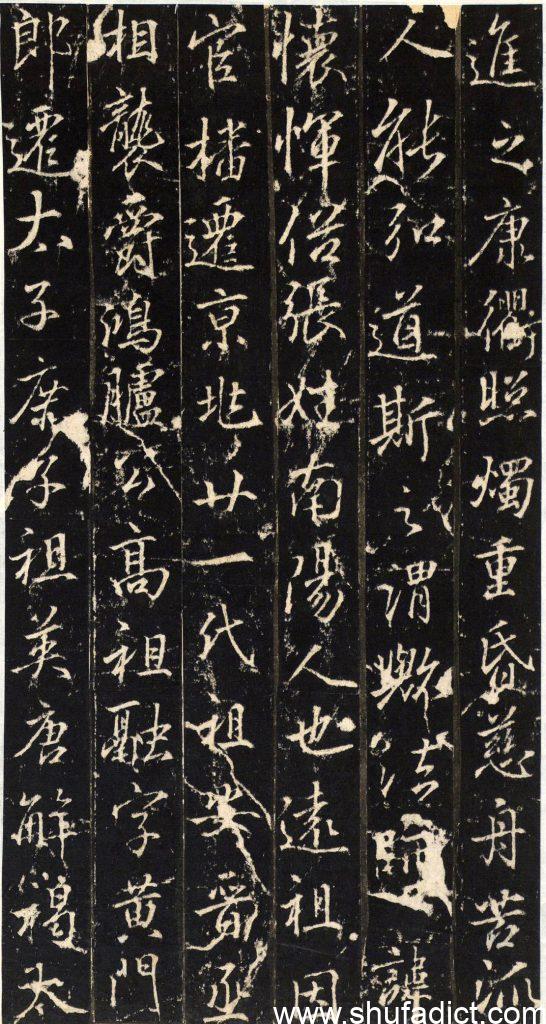 進之康衢照燭重昏慈舟苦
人能弘道斯之謂歟法師諱
懷惲俗張姓南陽人也遠祖因
官播遷京兆廿一代祖安晉丞
相襲爵鴻臚公高祖融字黃門
郎遷太子庶子祖英唐解褐太
www.shufadict.com